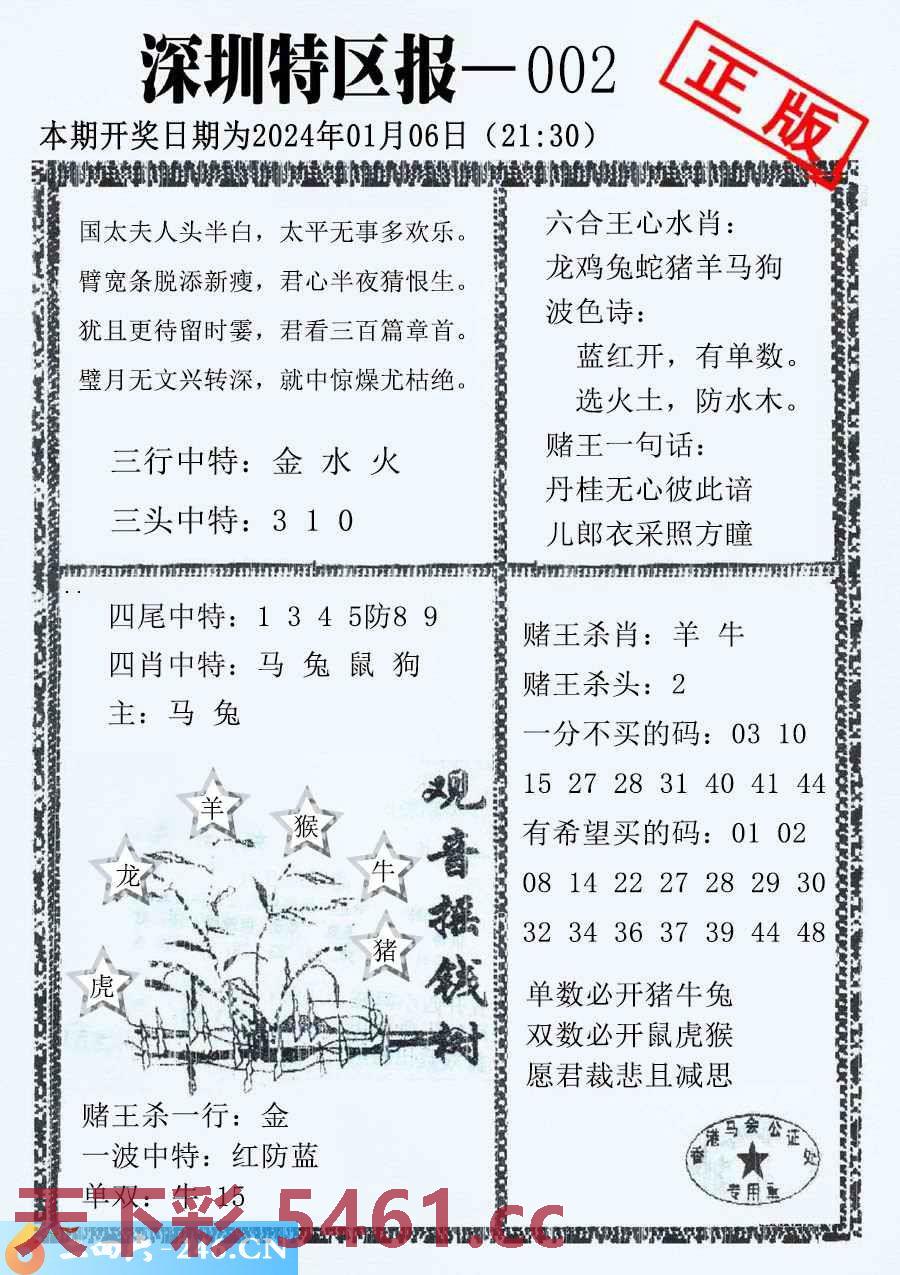 深圳特区报—002
正版
本期开奖日期为2024年01月06日（21:30）
国太夫人头半白，太平无事多欢乐。
臂宽条脱添新瘦，君心半夜猜恨生。
犹且更待留时霎，君看三百篇章首。
璧月无文兴转深，就中惊燥尤枯绝。
三行中特：金 水 火
三头中特：3 1 0
六合王心水肖：
龙鸡兔蛇猪羊马狗
波色诗：
蓝红开，有单数。
选火土，防水木。
赌王一句话：
丹桂无心彼此谙
儿郎衣采照方瞳
四尾中特：1 3 4 5防8 9
四肖中特：马 兔 鼠 狗
主：马 兔
观音摇钱树
羊
猴
龙
牛
猪
虎
赌王杀一行：金
一波中特：红防蓝
单双：牛 15
赌王杀肖：羊 牛
赌王杀头：2
一分不买的码：03 10
15 27 28 31 40 41 44
有希望买的码：01 02
08 14 22 27 28 29 30
32 34 36 37 39 44 48
单数必开猪牛兔
双数必开鼠虎猴
愿君裁悲且减思
香港马会公证处
专用章
天下彩 5461.cc